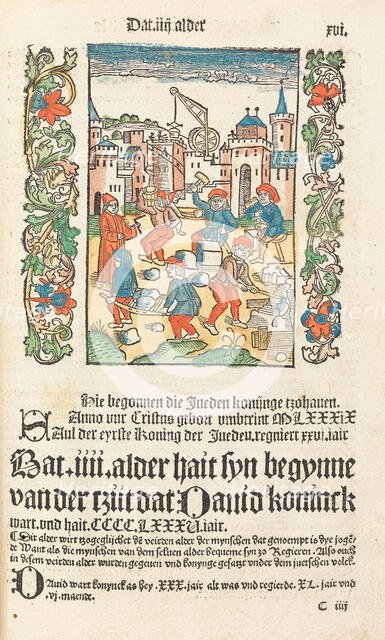 Dat .iiij alder
xvi.
Hie begonnen die Jueden konijnge tzohauen.
Anno vur Cristus gebort vmbtrint MLXXXIX
SAul der eyrste Koning der Jueden. regniert xxvi. iair
Dat .iiii. alder hait syn begynne
van der tzijt dat Dauid koninck
wart. vnd hait. CCCC. LXXXV. iair.
Dit alder wirt tzogeglijchet de veirden alder der mynschen dat genoempt is dye joge
de Want als die mynschen van dem seluen alder bequeme syn zo Regieren. Also ouch
in desem veirden alder wurden gegeuen vnd konynge gesatzt vnder dem juetschen volck.
DAuid wart konynck as hey .XXX. jair alt was vnd regierde. XL. jair vnd
.vj. maende.
C iiij